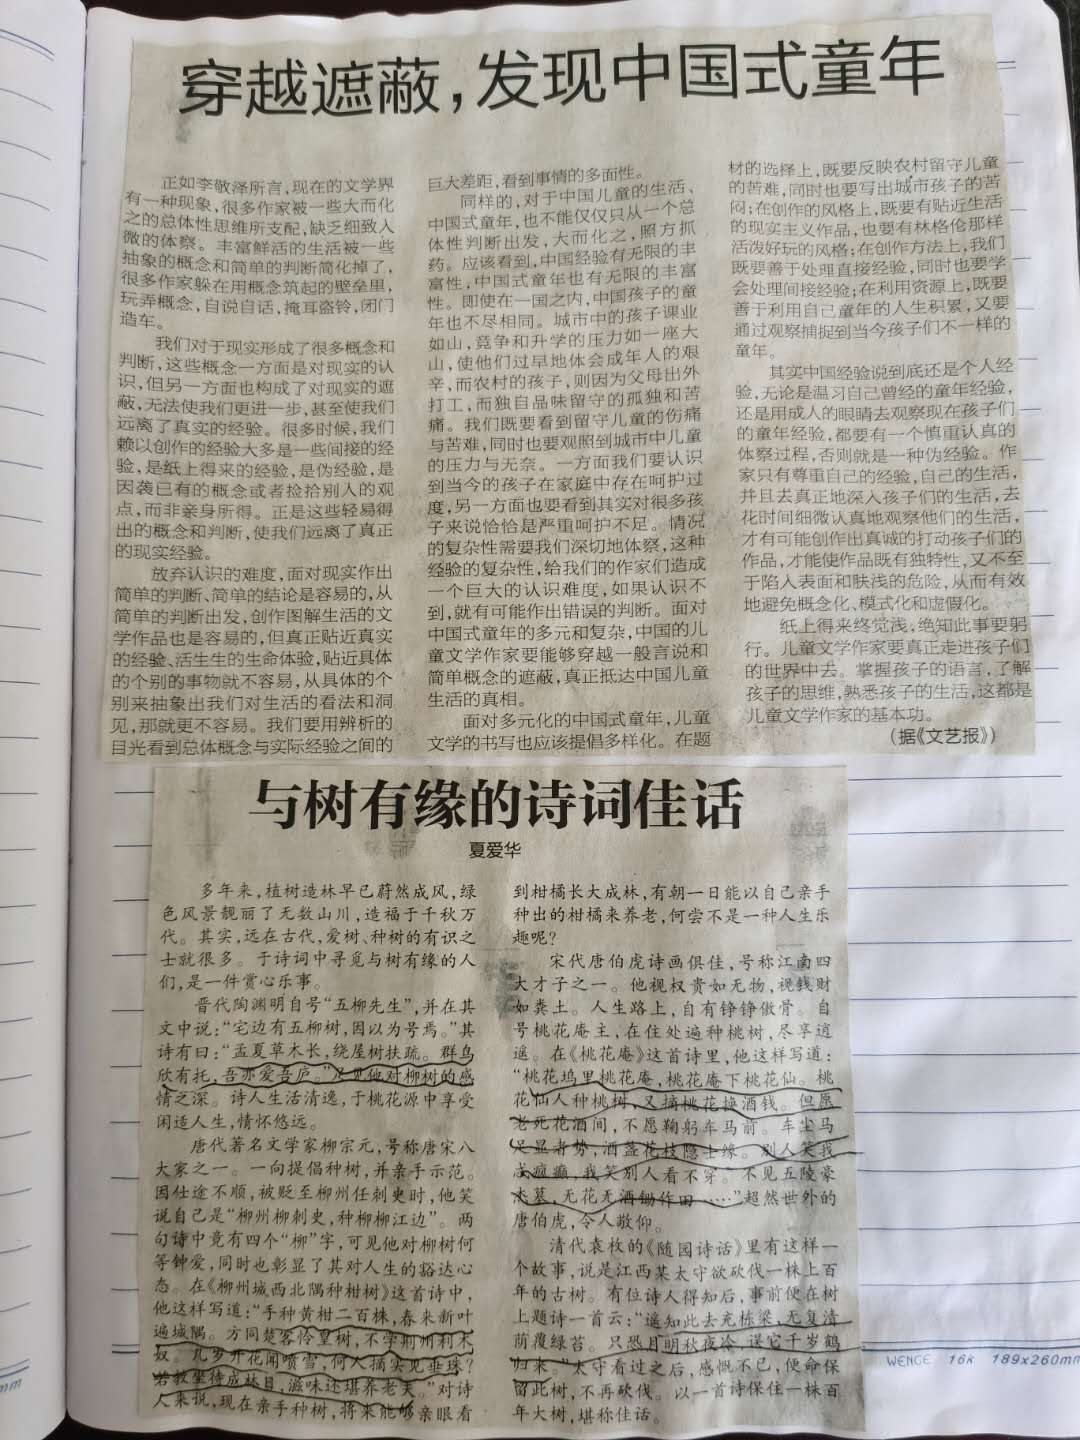 穿越遮蔽,发现中国式童年
正如李敬泽所言,现在的文学界
有一种现象,很多作家被一些大而化
之的总体性思维所支配,缺乏细致入
微的体察。丰富鲜活的生活被一些
抽象的概念和简单的判断简化掉了,
很多作家躲在用概念筑起的壁垒里,
玩弄概念,自说自话,掩耳盗铃,闭门
造车。
我们对于现实形成了很多概念和
判断,这些概念一方面是对现实的认
识,但另一方面也构成了对现实的遮
蔽,无法使我们更进一步,甚至使我们
远离了真实的经验。很多时候,我们
赖以创作的经验大多是一些间接的经
验,是纸上得来的经验,是伪经验,是
因袭已有的概念或者捡拾别人的观
点,而非亲身所得。正是这些轻易得
出的概念和判断,使我们远离了真正
的现实经验。
放弃认识的难度,面对现实作出
简单的判断、简单的结论是容易的,从
简单的判断出发,创作图解生活的文
学作品也是容易的,但真正贴近真实
的经验、活生生的生命体验,贴近具体
的个别的事物就不容易,从具体的个
别来抽象出我们对生活的看法和洞
见,那就更不容易。我们要用辨析的
目光看到总体概念与实际经验之间的
巨大差距,看到事情的多面性。
同样的,对于中国儿童的生活、
中国式童年,也不能仅仅只从一个总
体性判断出发,大而化之,照方抓
药。应该看到,中国经验有无限的丰
富性,中国式童年也有无限的丰富
性。即使在一国之内,中国孩子的童
年也不尽相同。城市中的孩子课业
如山,竞争和升学的压力如一座大
山,使他们过早地体会成年人的艰
辛,而农村的孩子,则因为父母出外
打工,而独自品味留守的孤独和苦
痛。我们既要看到留守儿童的伤痛
与苦难,同时也要观照到城市中儿童
的压力与无奈。一方面我们要认识
到当今的孩子在家庭中存在呵护过
度,另一方面也要看到其实对很多孩
子来说恰恰是严重呵护不足。情况
的复杂性需要我们深切地体察,这种
经验的复杂性,给我们的作家们造成
一个巨大的认识难度,如果认识不
到,就有可能作出错误的判断。面对
中国式童年的多元和复杂,中国的儿
童文学作家要能够穿越一般言说和
简单概念的遮蔽,真正抵达中国儿童
生活的真相。
面对多元化的中国式童年,儿童
文学的书写也应该提倡多样化。在题
材的选择上,既要反映农村留守儿童
的苦难,同时也要写出城市孩子的苦
闷;在创作的风格上,既要有贴近生活
的现实主义作品,也要有林格伦那样
活泼好玩的风格;在创作方法上,我们
既要善于处理直接经验,同时也要学
会处理间接经验;在利用资源上,既要
善于利用自己童年的人生积累,又要
通过观察捕捉到当今孩子们不一样的
童年。
其实中国经验说到底还是个人经
验,无论是温习自己曾经的童年经验,
还是用成人的眼睛去观察现在孩子们
的童年经验,都要有一个慎重认真的
体察过程,否则就是一种伪经验。作
家只有尊重自己的经验,自己的生活,
并且去真正地深入孩子们的生活,去
花时间细微认真地观察他们的生活,
才有可能创作出真诚的打动孩子们的
作品,才能使作品既有独特性,又不至
于陷入表面和肤浅的危险,从而有效
地避免概念化、模式化和虚假化。
纸上得来终觉浅,绝知此事要躬
行。儿童文学作家要真正走进孩子们
的世界中去。掌握孩子的语言,了解
孩子的思维,熟悉孩子的生活,这都是
儿童文学作家的基本功。
(据《文艺报》)
与树有缘的诗词佳话
夏爱华
多年来,植树造林早已蔚然成风,绿
色风景靓丽了无数山川,造福于千秋万
代。其实,远在古代,爱树、种树的有识之
士就很多。于诗词中寻觅与树有缘的人
们,是一件赏心乐事。
晋代陶渊明自号“五柳先生”,并在其
文中说:“宅边有五柳树,因以为号焉。”其
诗有曰:“孟夏草木长,绕屋树扶疏。群鸟
欣有托,吾亦爱吾庐。”足见他对柳树的感
情之深。诗人生活清逸,于桃花源中享受
闲适人生,情怀悠远。
唐代著名文学家柳宗元,号称唐宋八
大家之一。一向提倡种树,并亲手示范。
因仕途不顺,被贬至柳州任刺史时,他笑
说自己是“柳州柳刺史,种柳柳江边”。两
句诗中竟有四个“柳”字,可见他对柳树何
等钟爱,同时也彰显了其对人生的豁达心
态。在《柳州城西北隅种柑树》这首诗中,
他这样写道:“手种黄柑二百株,春来新叶
遍城隅。方同楚客怜皇树,不学荆州利木
奴。几岁开花闻喷雪,何人摘实见垂珠?
若教坐待成林日,滋味还堪养老夫。”对诗
人来说,现在亲手种树,将来能够亲眼看
到柑橘长大成林,有朝一日能以自己亲手
种出的柑橘来养老,何尝不是一种人生乐
趣呢?
宋代唐伯虎诗画俱佳,号称江南四
大才子之一。他视权贵如无物,视钱财
如粪土。人生路上,自有铮铮傲骨。自
号桃花庵主,在住处遍种桃树,尽享逍
遥。在《桃花庵》这首诗里,他这样写道:
“桃花坞里桃花庵,桃花庵下桃花仙。桃
花仙人种桃树,又摘桃花换酒钱。但愿
老死花酒间,不愿鞠躬车马前。车尘马
足显者势,酒盏花枝隐士缘。别人笑我
忒疯癫,我笑别人看不穿。不见五陵豪
杰墓,无花无酒锄作田……”超然世外的
唐伯虎,令人敬仰。
清代袁枚的《随园诗话》里有这样一
个故事,说是江西某太守欲砍伐一株上百
年的古树。有位诗人得知后,事前便在树
上题诗一首云:“遥知此去充栋梁,无复清
荫覆绿苔。只恐月明秋夜冷,误它千岁鹤
归来。”太守看过之后,感慨不已,便命保
留此树,不再砍伐。以一首诗保住一株百
年大树,堪称佳话。
WENGE 16K 189x260mm
mm